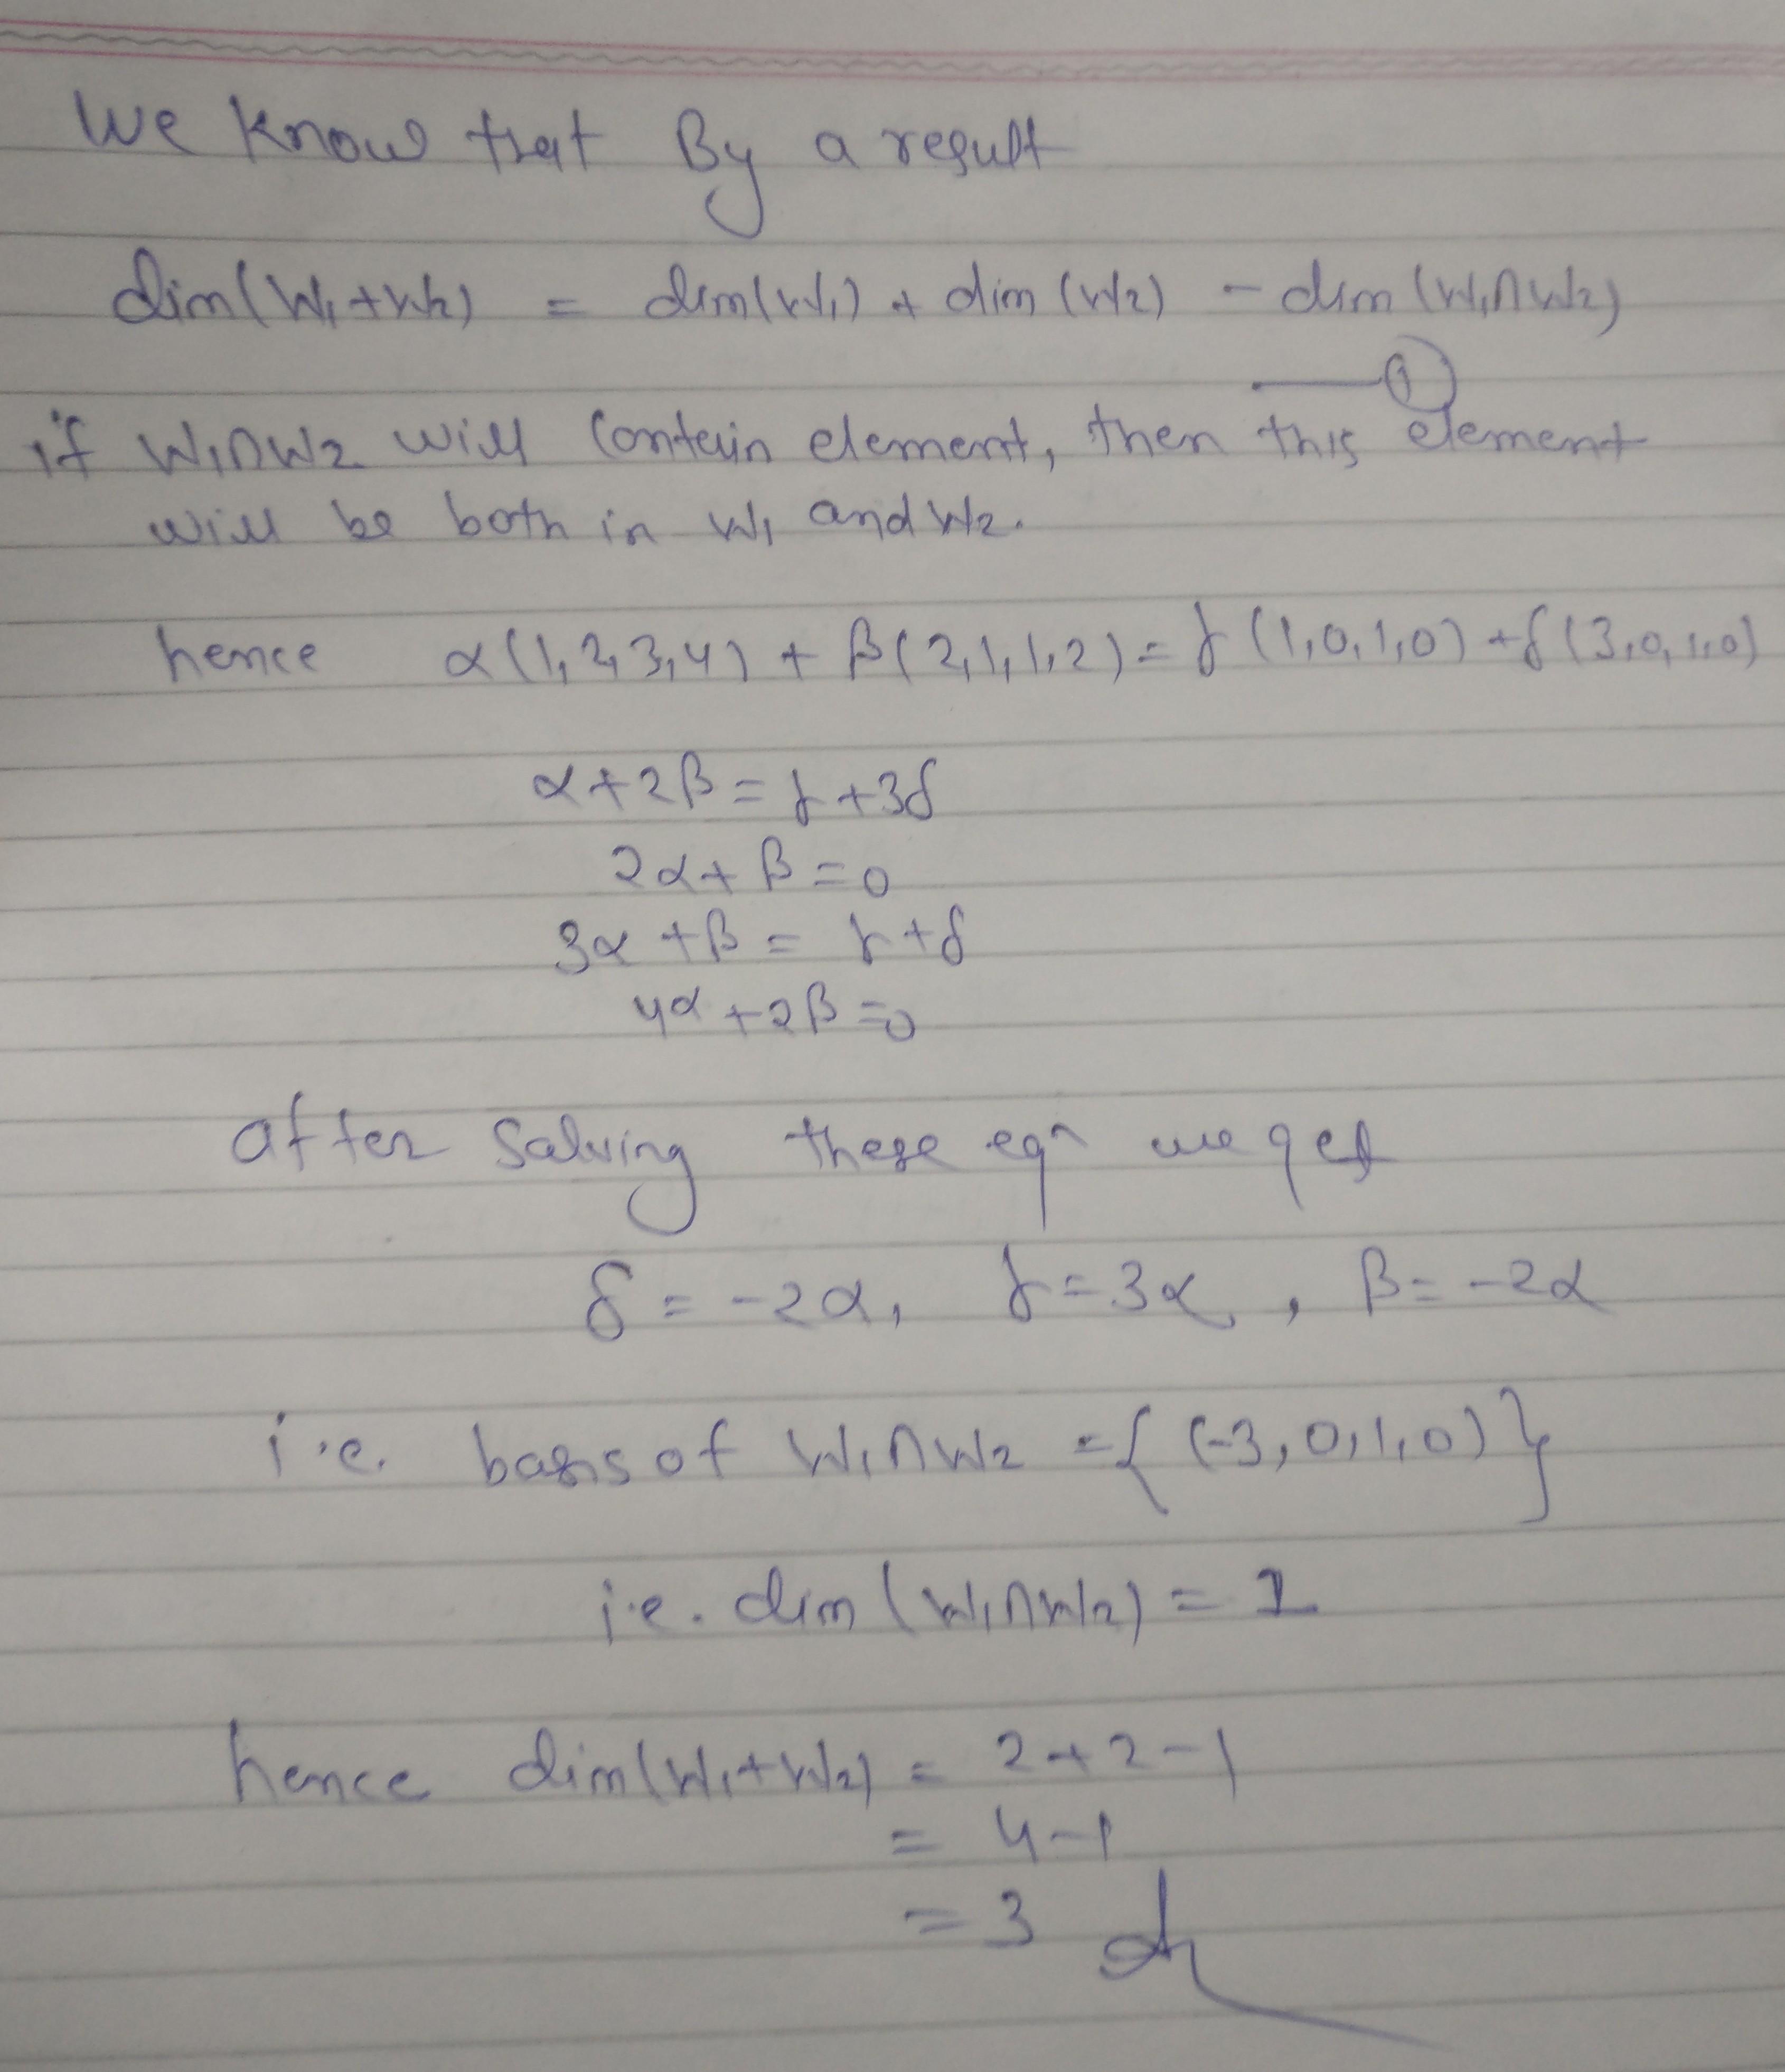 We know that By a result
dim(W₁+W₂) = dim(W₁) + dim(W₂) - dim(W₁∩W₂)
①
if W₁∩W₂ will contain element, then this element
will be both in W₁ and W₂.
hence α(1,2,3,4) + β(2,1,1,2) = γ(1,0,1,0) + δ(3,0,1,0)
α+2β = γ+3δ
2α+β=0
3α+β = γ+δ
4α+2β=0
after solving these eqn we get
δ = -2α, γ=3α, β=-2α
i.e. basis of W₁∩W₂ = {(-3,0,1,0)}
i.e. dim(W₁∩W₂) = 1
hence dim(W₁+W₂) = 2+2-1
= 4-1
= 3